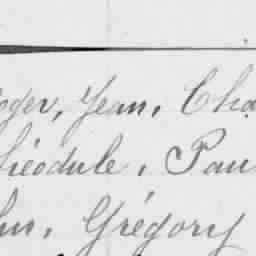 oger, Jean, Cha
héodule, Pau
Grégory